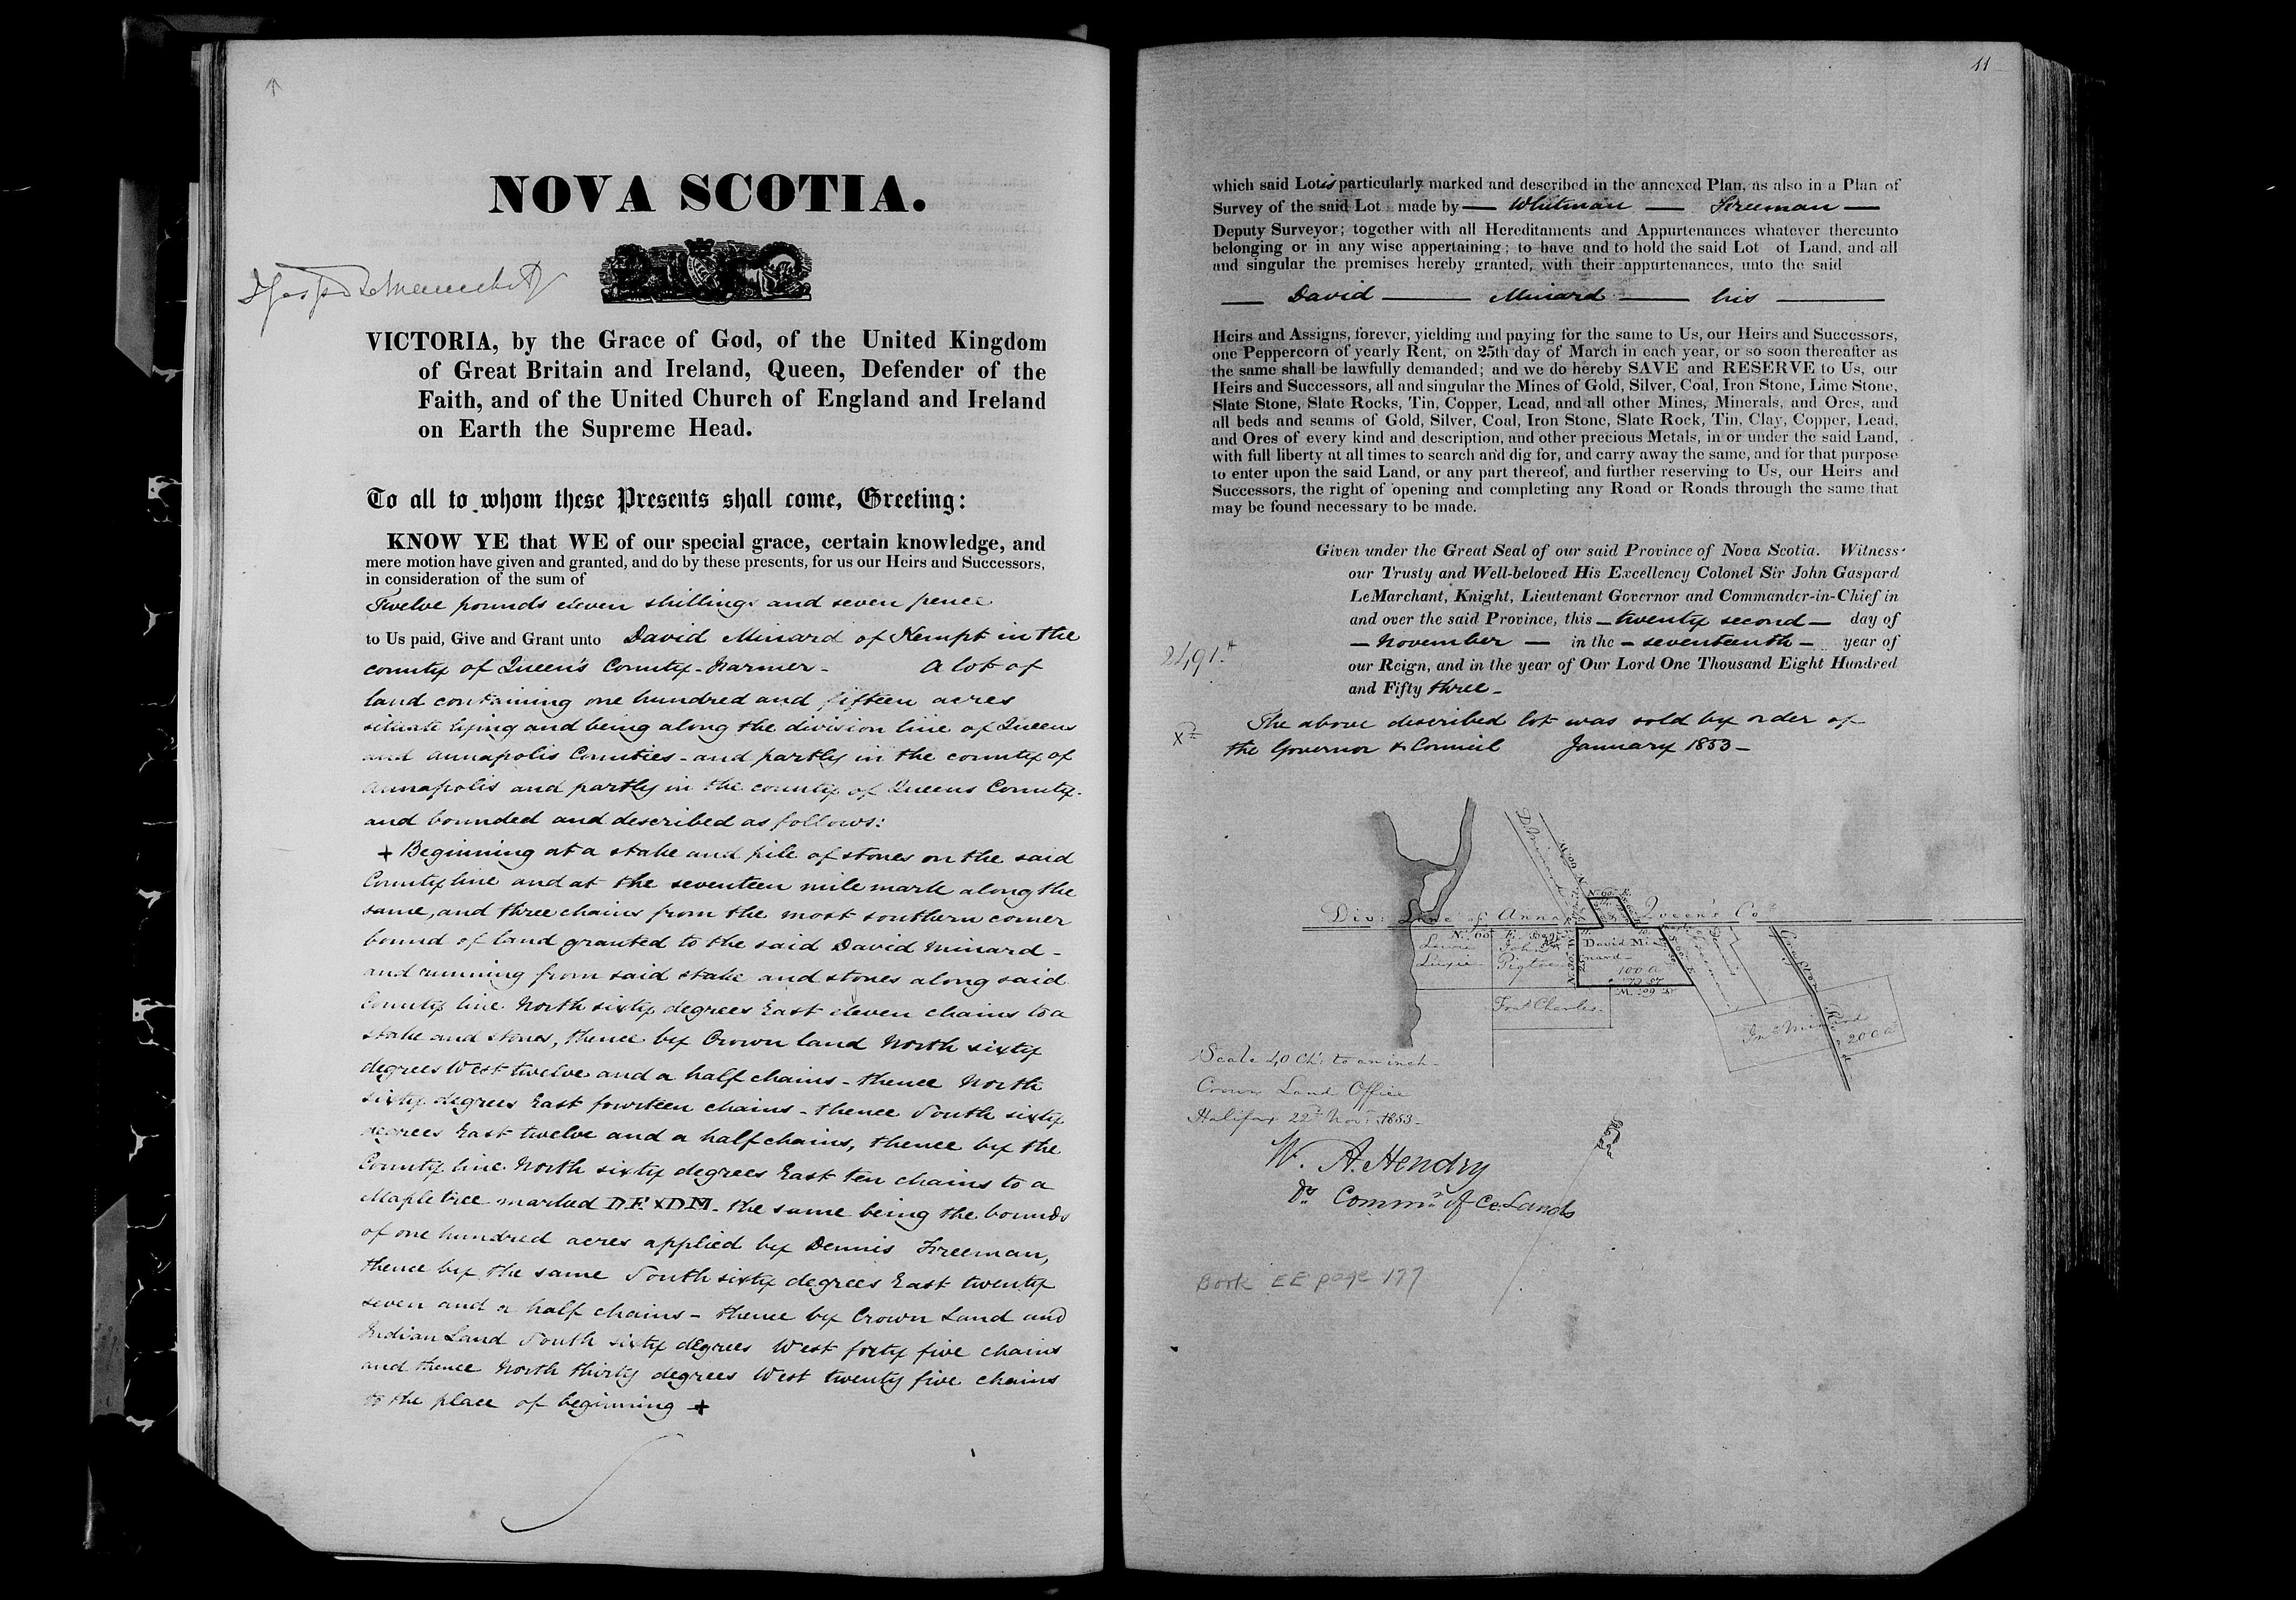 NOVA SCOTIA.
VICTORIA, by the Grace of God, of the United Kingdom
of Great Britain and Ireland, Queen, Defender of the
Faith, and of the United Church of England and Ireland
on Earth the Supreme Head.
To all to whom these Presents shall come, Greeting:
KNOW YE that WE of our special grace, certain knowledge, and
mere motion have given and granted, and do by these presents, for us our Heirs and Successors,
in consideration of the sum of
Twelve pounds eleven shillings and seven pence
to Us paid, Give and Grant unto David Minard of Kempt in the
county of Queen's County - Farmer - A lot of
land containing one hundred and fifteen acres
situate lying and being along the division line of Queens
and Annapolis Counties - and partly in the county of
Annapolis and partly in the county of Queens County -
and bounded and described as follows:
+ Beginning at a stake and pile of stones on the said
County line and at the seventeen mile mark along the
same, and three chains from the most southern corner
bound of land granted to the said David Minard -
and running from said stake and stones along said
County line North sixty degrees East eleven chains to a
stake and stones, thence by Crown land North sixty
degrees West twelve and a half chains - thence North
sixty degrees East fourteen chains - thence South sixty
degrees East twelve and a half chains, thence by the
County line North sixty degrees East ten chains to a
Maple tree marked DF×DM - the same being the bounds
of one hundred acres applied by Dennis Freeman,
thence by the same South sixty degrees East twenty
seven and a half chains - thence by Crown Land and
Indian Land South sixty degrees West forty five chains
and thence North thirty degrees West twenty five chains
to the place of beginning +
11
which said Lot is particularly marked and described in the annexed Plan, as also in a Plan of
Survey of the said Lot made by — Whitman — Freeman —
Deputy Surveyor; together with all Hereditaments and Appurtenances whatever thereunto
belonging or in any wise appertaining; to have and to hold the said Lot of Land, and all
and singular the premises hereby granted, with their appurtenances, unto the said
— David — Minard — his —
Heirs and Assigns, forever, yielding and paying for the same to Us, our Heirs and Successors,
one Peppercorn of yearly Rent, on 25th day of March in each year, or so soon thereafter as
the same shall be lawfully demanded; and we do hereby SAVE and RESERVE to Us, our
Heirs and Successors, all and singular the Mines of Gold, Silver, Coal, Iron Stone, Lime Stone,
Slate Stone, Slate Rocks, Tin, Copper, Lead, and all other Mines, Minerals, and Ores, and
all beds and seams of Gold, Silver, Coal, Iron Stone, Slate Rock, Tin, Clay, Copper, Lead,
and Ores of every kind and description, and other precious Metals, in or under the said Land,
with full liberty at all times to search and dig for, and carry away the same, and for that purpose
to enter upon the said Land, or any part thereof, and further reserving to Us, our Heirs and
Successors, the right of opening and completing any Road or Roads through the same that
may be found necessary to be made.
Given under the Great Seal of our said Province of Nova Scotia. Witness
our Trusty and Well-beloved His Excellency Colonel Sir John Gaspard
LeMarchant, Knight, Lieutenant Governor and Commander-in-Chief in
and over the said Province, this — twenty second — day of
— November — in the — seventeenth — year of
our Reign, and in the year of Our Lord One Thousand Eight Hundred
and Fifty three -
The above described lot was sold by order of
the Governor & Council January 1853 -
Div: Line of Anna Queen's Co
David Mi-
nard
100 a
Fra.s Charles
Jn.o Minard
200 a
Scale 40 Ch.s to an inch -
Crown Land Office
Halifax 22d Nov. 1853 -
W. A. Hendry
Dy. Comm.r of Cr. Lands
Book EE page 177